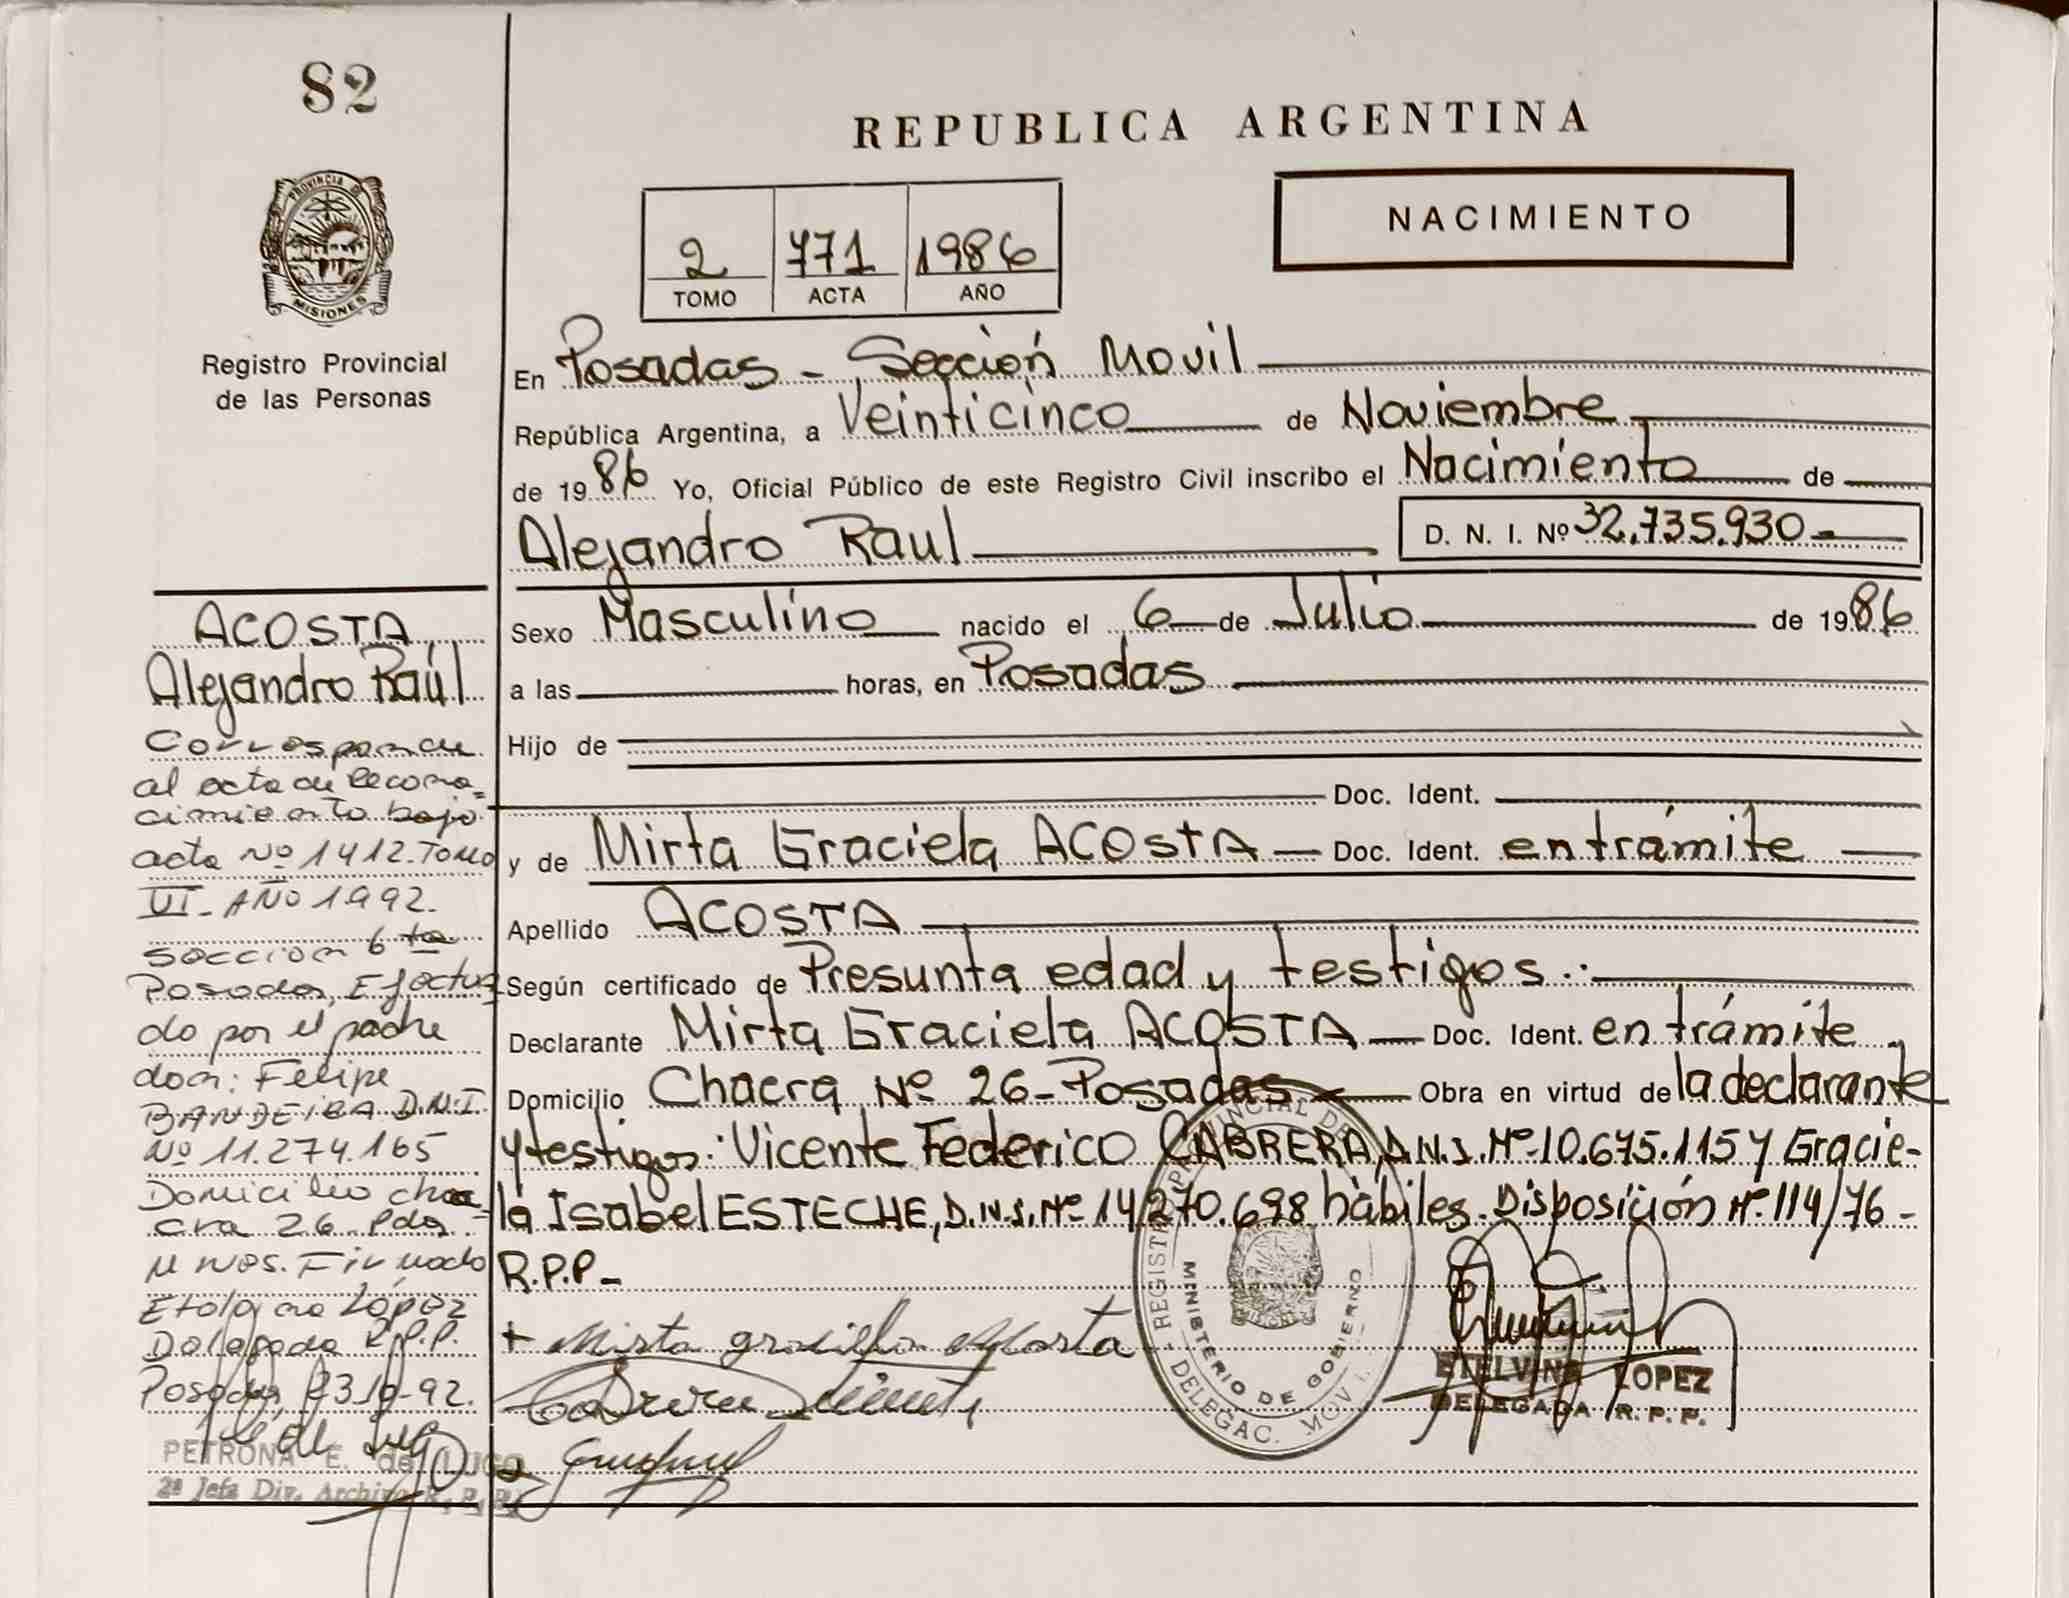 82
PROVINCIA DE
MISIONES
Registro Provincial
de las Personas
REPUBLICA ARGENTINA
NACIMIENTO
2 771 1986
TOMO ACTA AÑO
En Posadas - Sección Movil
República Argentina, a Veinticinco de Noviembre
de 1986 Yo, Oficial Público de este Registro Civil inscribo el Nacimiento de
Alejandro Raul D. N. I. Nº 32.735.930-
Sexo Masculino nacido el 6 de Julio de 1986
a las horas, en Posadas
Hijo de
Doc. Ident.
y de Mirta Graciela ACOSTA Doc. Ident. en trámite
Apellido ACOSTA
Según certificado de Presunta edad y testigos.:
Declarante Mirta Graciela ACOSTA Doc. Ident. en trámite
Domicilio Chacra Nº 26-Posadas Obra en virtud de la declarante
y testigos: Vicente Federico CABRERA, D.N.I. Nº 10.675.115 y Gracie-
la Isabel ESTECHE, D.N.I. Nº 14.270.698 hábiles. Disposición Nº 114/76-
R.P.P-
+ Mirta graciela Acosta
ETELVINA LOPEZ
DELEGADA R. P. P.
REGISTRO PROVINCIAL DE
MINISTERIO DE GOBIERNO
DELEGAC. MOVIL
ACOSTA
Alejandro Raúl
Corresponde
al acta de recono=
cimiento bajo
acta Nº 1412. Tomo
VI - AÑO 1992.
Seccion 6ta
Posadas, Efectua
do por el padre
don: Felipe
BANDEIRA D.N.I.
Nº 11.274.165
Domicilio cha
cra 26. Pdas -
Mnes. Firmado
López
Delegada R.P.P.
Posadas, 23 10-92.
PETRONA E. de LUGO
2ª Jefa Div. Archivo R. P. P.